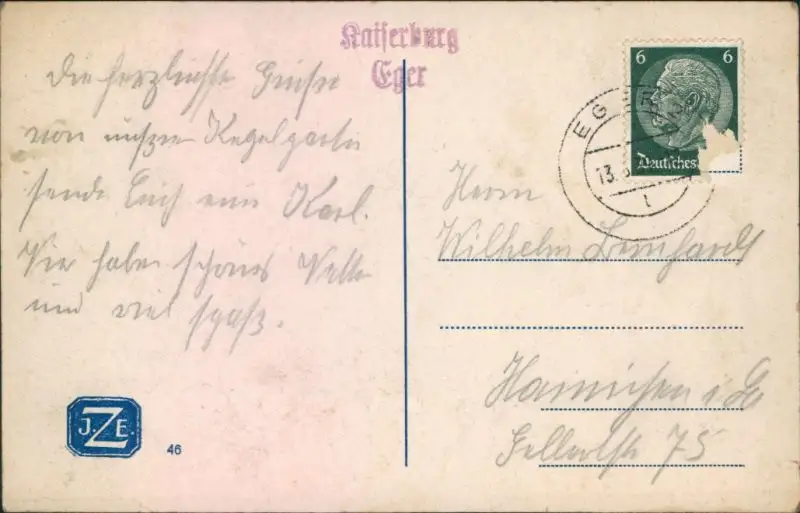 Kaiserburg
Eger
Die herzlichste Grüße
von unsrer Kegelpartie
sende Euch euer Karl.
Wir haben schönes Wetter
und viel Spaß.
6 6
Deutsches
EGER
13.
Herrn
Wilhelm Leonhardt
Hainichen i. Sa
Gellertstr 75
J.Z.E.
46